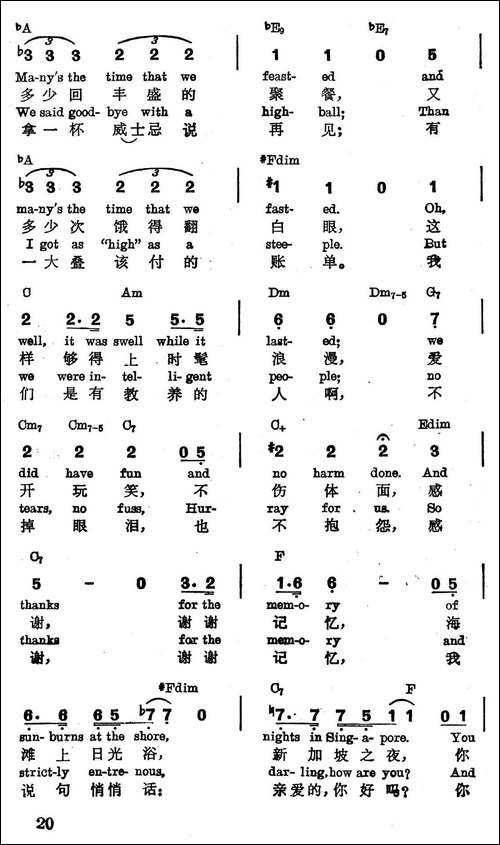 ♭A ♭E9 ♭E7
3 3
♭3 3 3 2 2 2 | 1 1 0 5
Ma-ny's the time that we feast- ed and
多少回 丰盛的 聚餐， 又
We said good- bye with a high- ball; Than
拿一杯 威士忌说 再见； 有
♭A #Fdim
3 3
♭3 3 3 2 2 2 | #1 1 0 1
ma-ny's the time that we fast- ed. Oh,
多少次 饿得翻 白眼， 这
I got as "high" as a stee- ple. But
一大叠 该付的 账单。 我
C Am Dm Dm7-5 G7
2 2· 2 5 5· 5 | 6 6 0 7
well, it was swell while it last- ed; we
样 够得上时髦 浪漫， 爱
we were in- tel- li- gent peo- ple; no
们 是有教养的 人啊， 不
Cm7 Cm7-5 C7 C+ Edim
2 2 2 0 5 | #2 2 2 3
did have fun and no harm done. And
开玩笑， 不 伤体面， 感
tears, no fuss, Hur- ray for us. So
掉眼泪， 也 不抱怨， 感
G7 F
5 – 0 3· 2 | 1·6 6 – 0 5
thanks for the mem-o- ry of
谢， 谢谢 记忆， 海
thanks for the mem-o- ry and
谢， 谢谢 记忆， 我
#Fdim C7 F
6· 6 6 5 ♭7 7 0 | ♮7· 7 7 5 1 1 0 1
sun- burns at the shore, nights in Sing- a- pore. You
滩上日光浴， 新加坡之夜， 你
strict-ly en-tre-nous, dar- ling, how are you? And
说句悄悄话： 亲爱的，你好吗？ 你
20